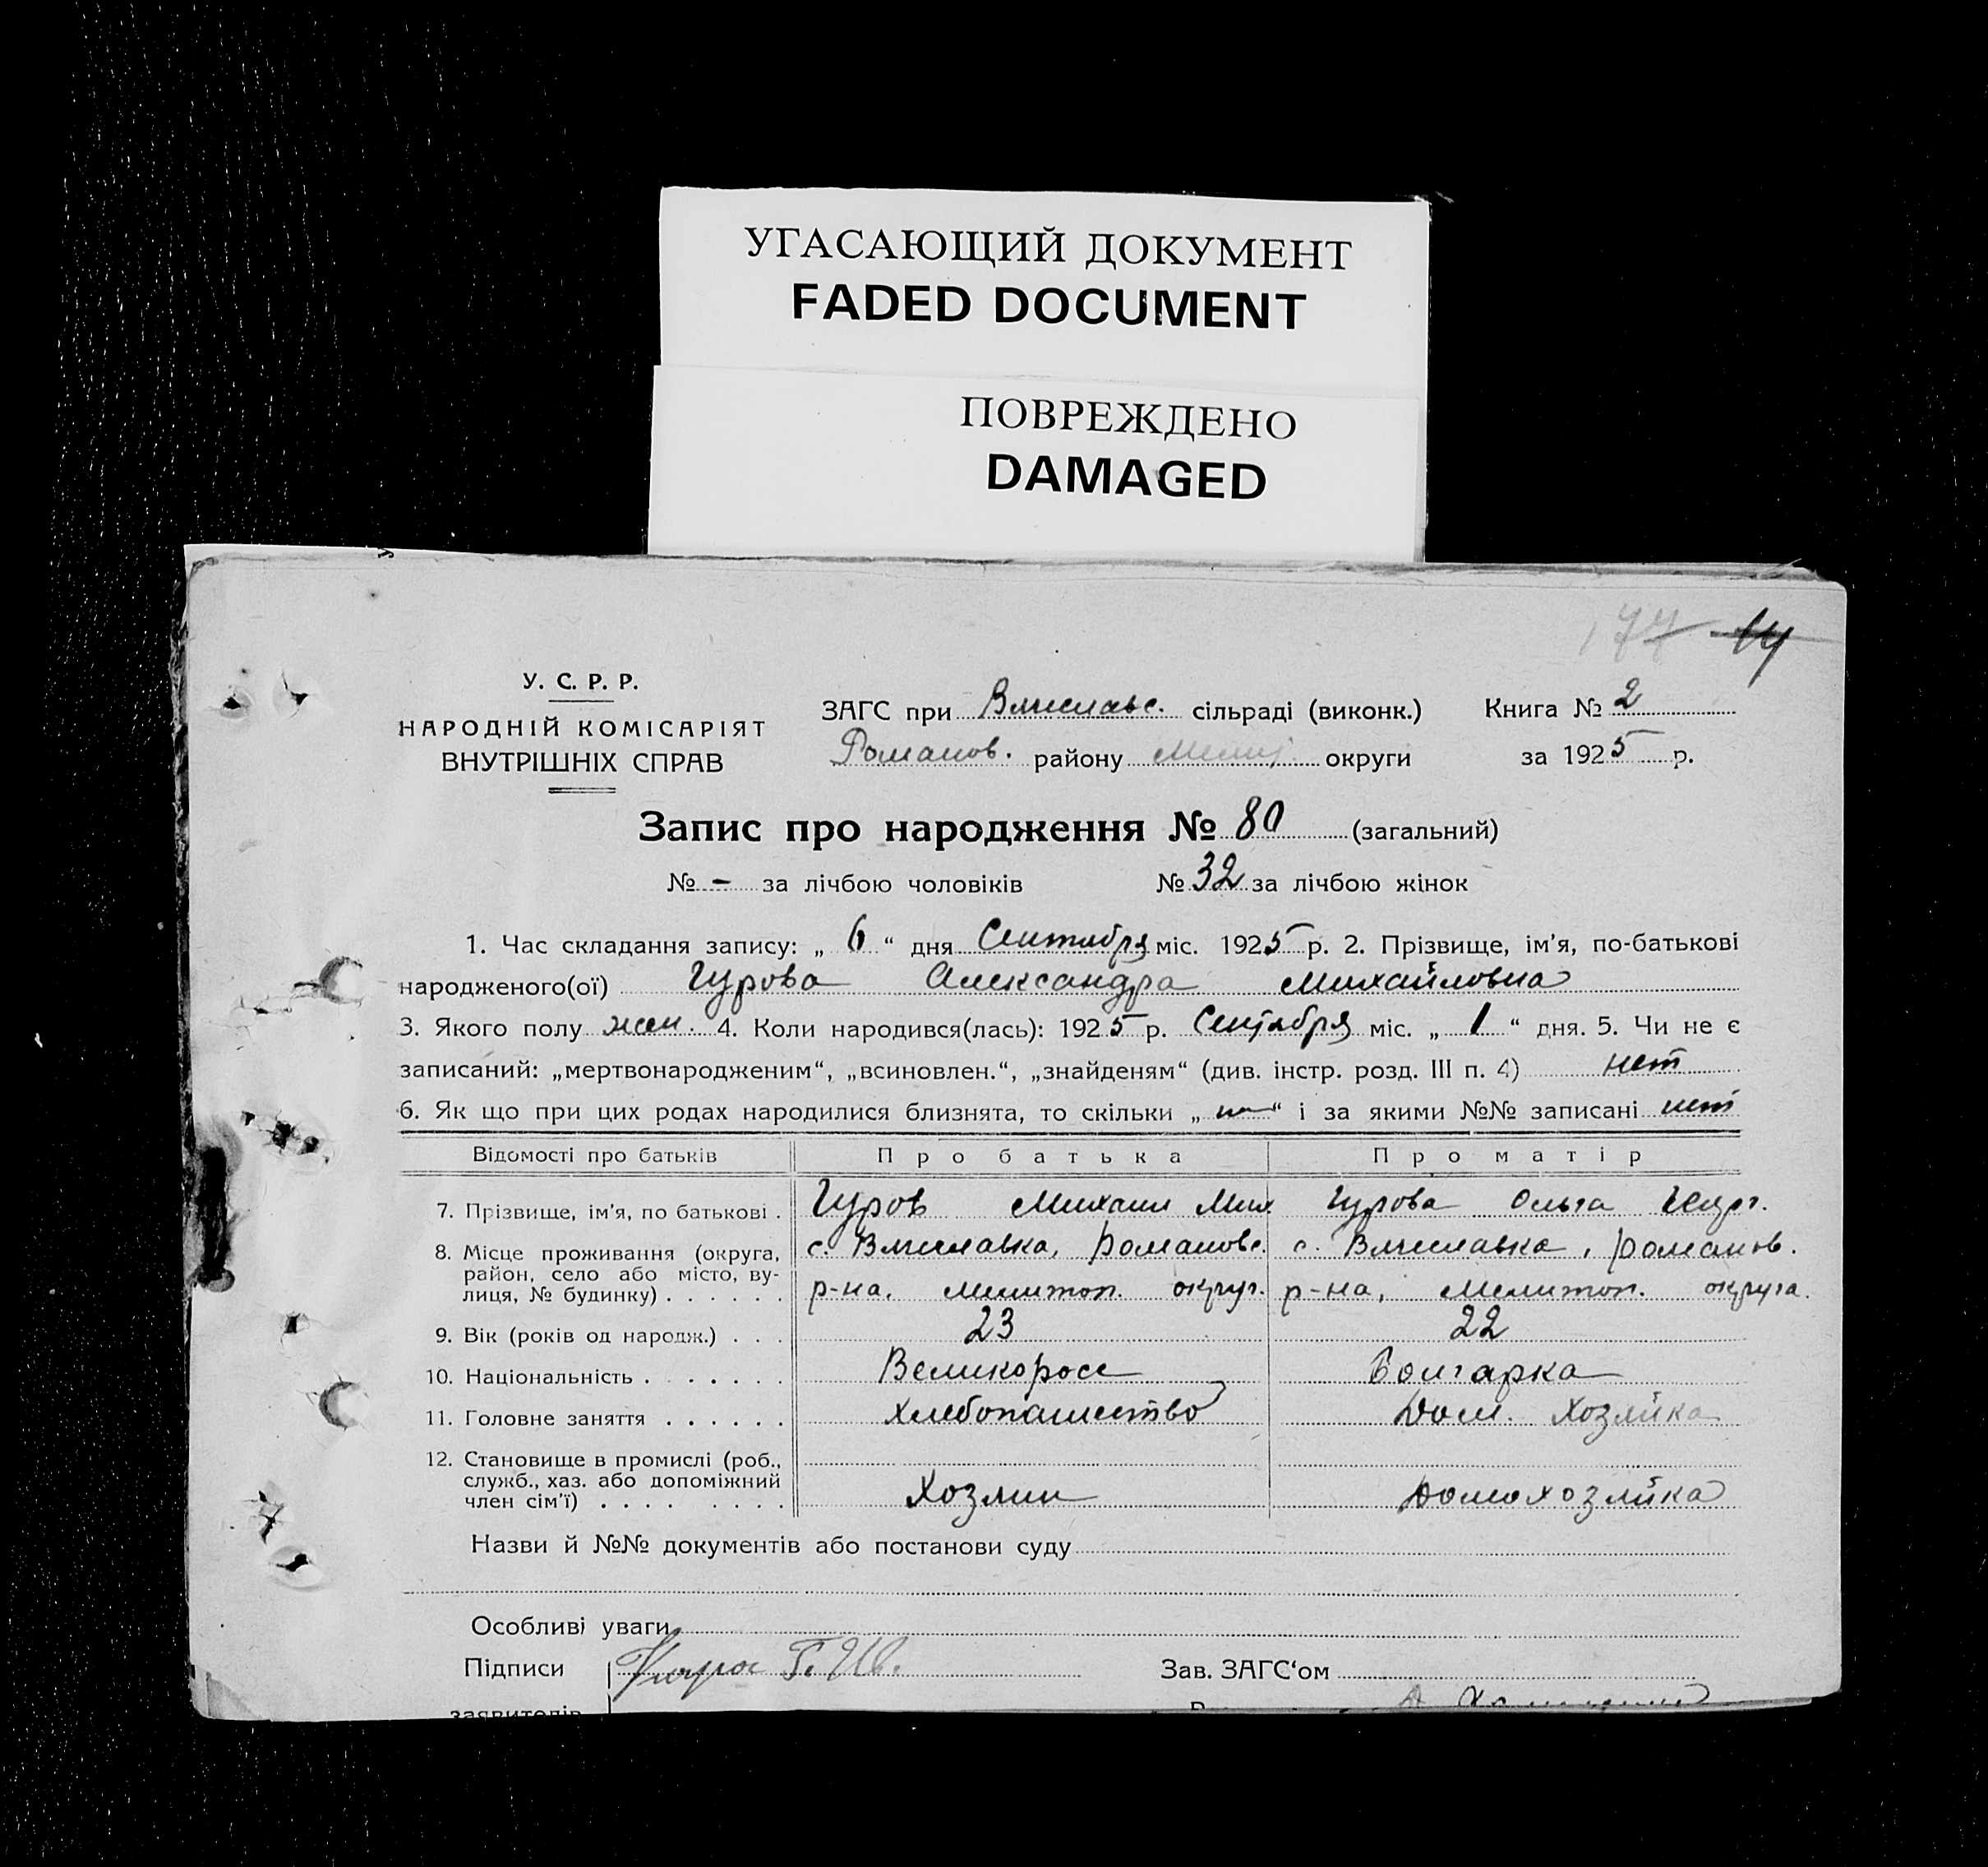 УГАСАЮЩИЙ ДОКУМЕНТ
FADED DOCUMENT
ПОВРЕЖДЕНО
DAMAGED
177 14
У. С. Р. Р.
НАРОДНІЙ КОМІСАРІЯТ
ВНУТРІШНІХ СПРАВ
ЗАГС при сільраді (виконк.) Книга № 2
Романов. району Мелит. округи за 1925 р.
Запис про народження № 80 (загальний)
№ - за лічбою чоловіків № 32 за лічбою жінок
1. Час складання запису: „ 6 “ дня Сентября міс. 1925 р. 2. Прізвище, ім'я, по-батькові
народженого(ої) Гурова Александра Михайловна
3. Якого полу жен. 4. Коли народився(лась): 1925 р. Сентября міс. „ 1 “ дня. 5. Чи не є
записаний: „мертвонародженим“, „всиновлен.“, „знайденям“ (див. інстр. розд. III п. 4) нет
6. Як що при цих родах народилися близнята, то скільки „ — “ і за якими №№ записані нет
Відомості про батьків Про батька Про матір
7. Прізвище, ім'я, по батькові . Гуров Михаил Мих. Гурова Ольга Георг.
8. Місце проживання (округа, район, село або місто, вулиця, № будинку) . . . . . . с. Романовс. р-на, Мелитоп. округ. с. Романов. р-на, Мелитоп. округа.
9. Вік (років од народж.) . . . 23 22
10. Національність . . . . . . . Великоросс Болгарка
11. Головне заняття . . . . . . Хлебопашество Дом. Хозяйка
12. Становище в промислі (роб., служб., хаз. або допоміжний член сім'ї) . . . . . . . . . Хозяин Домохозяйка
Назви й №№ документів або постанови суду
Особливі уваги
Підписи Г. Ив. Зав. ЗАГС‘ом
заявителів